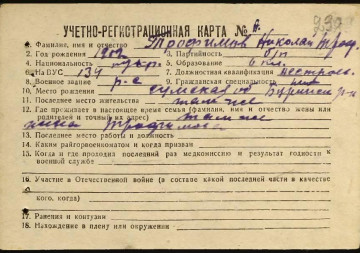 УЧЕТНО-РЕГИСТРАЦИОННАЯ КАРТА № 
1. Фамилия, имя и отчество Трофимов Николай Троф.
2. Год рождения 3. Партийность б/п
4. Национальность 5. Образование 6 кл.
6. На ПУС 134 7. Должностная квалификация
8. Военное звание р-с 9. Гражданская специальность
10. Место рождения Сумская об
11. Последнее место жительства там же
12. Где проживает в настоящее время семья (фамилия, имя и отчество жены или
родителей и точный их адрес) там же
жена
13. Последнее место работы и должность
14. Каким райгорвоенкоматом и когда призван
15. Когда и где проходил последний раз медкомиссию и результат годности к
военной службе
16. Участие в Отечественной войне (в составе какой последней части в качестве
кого, когда)
17. Ранения и контузии
18. Нахождение в плену или окружении